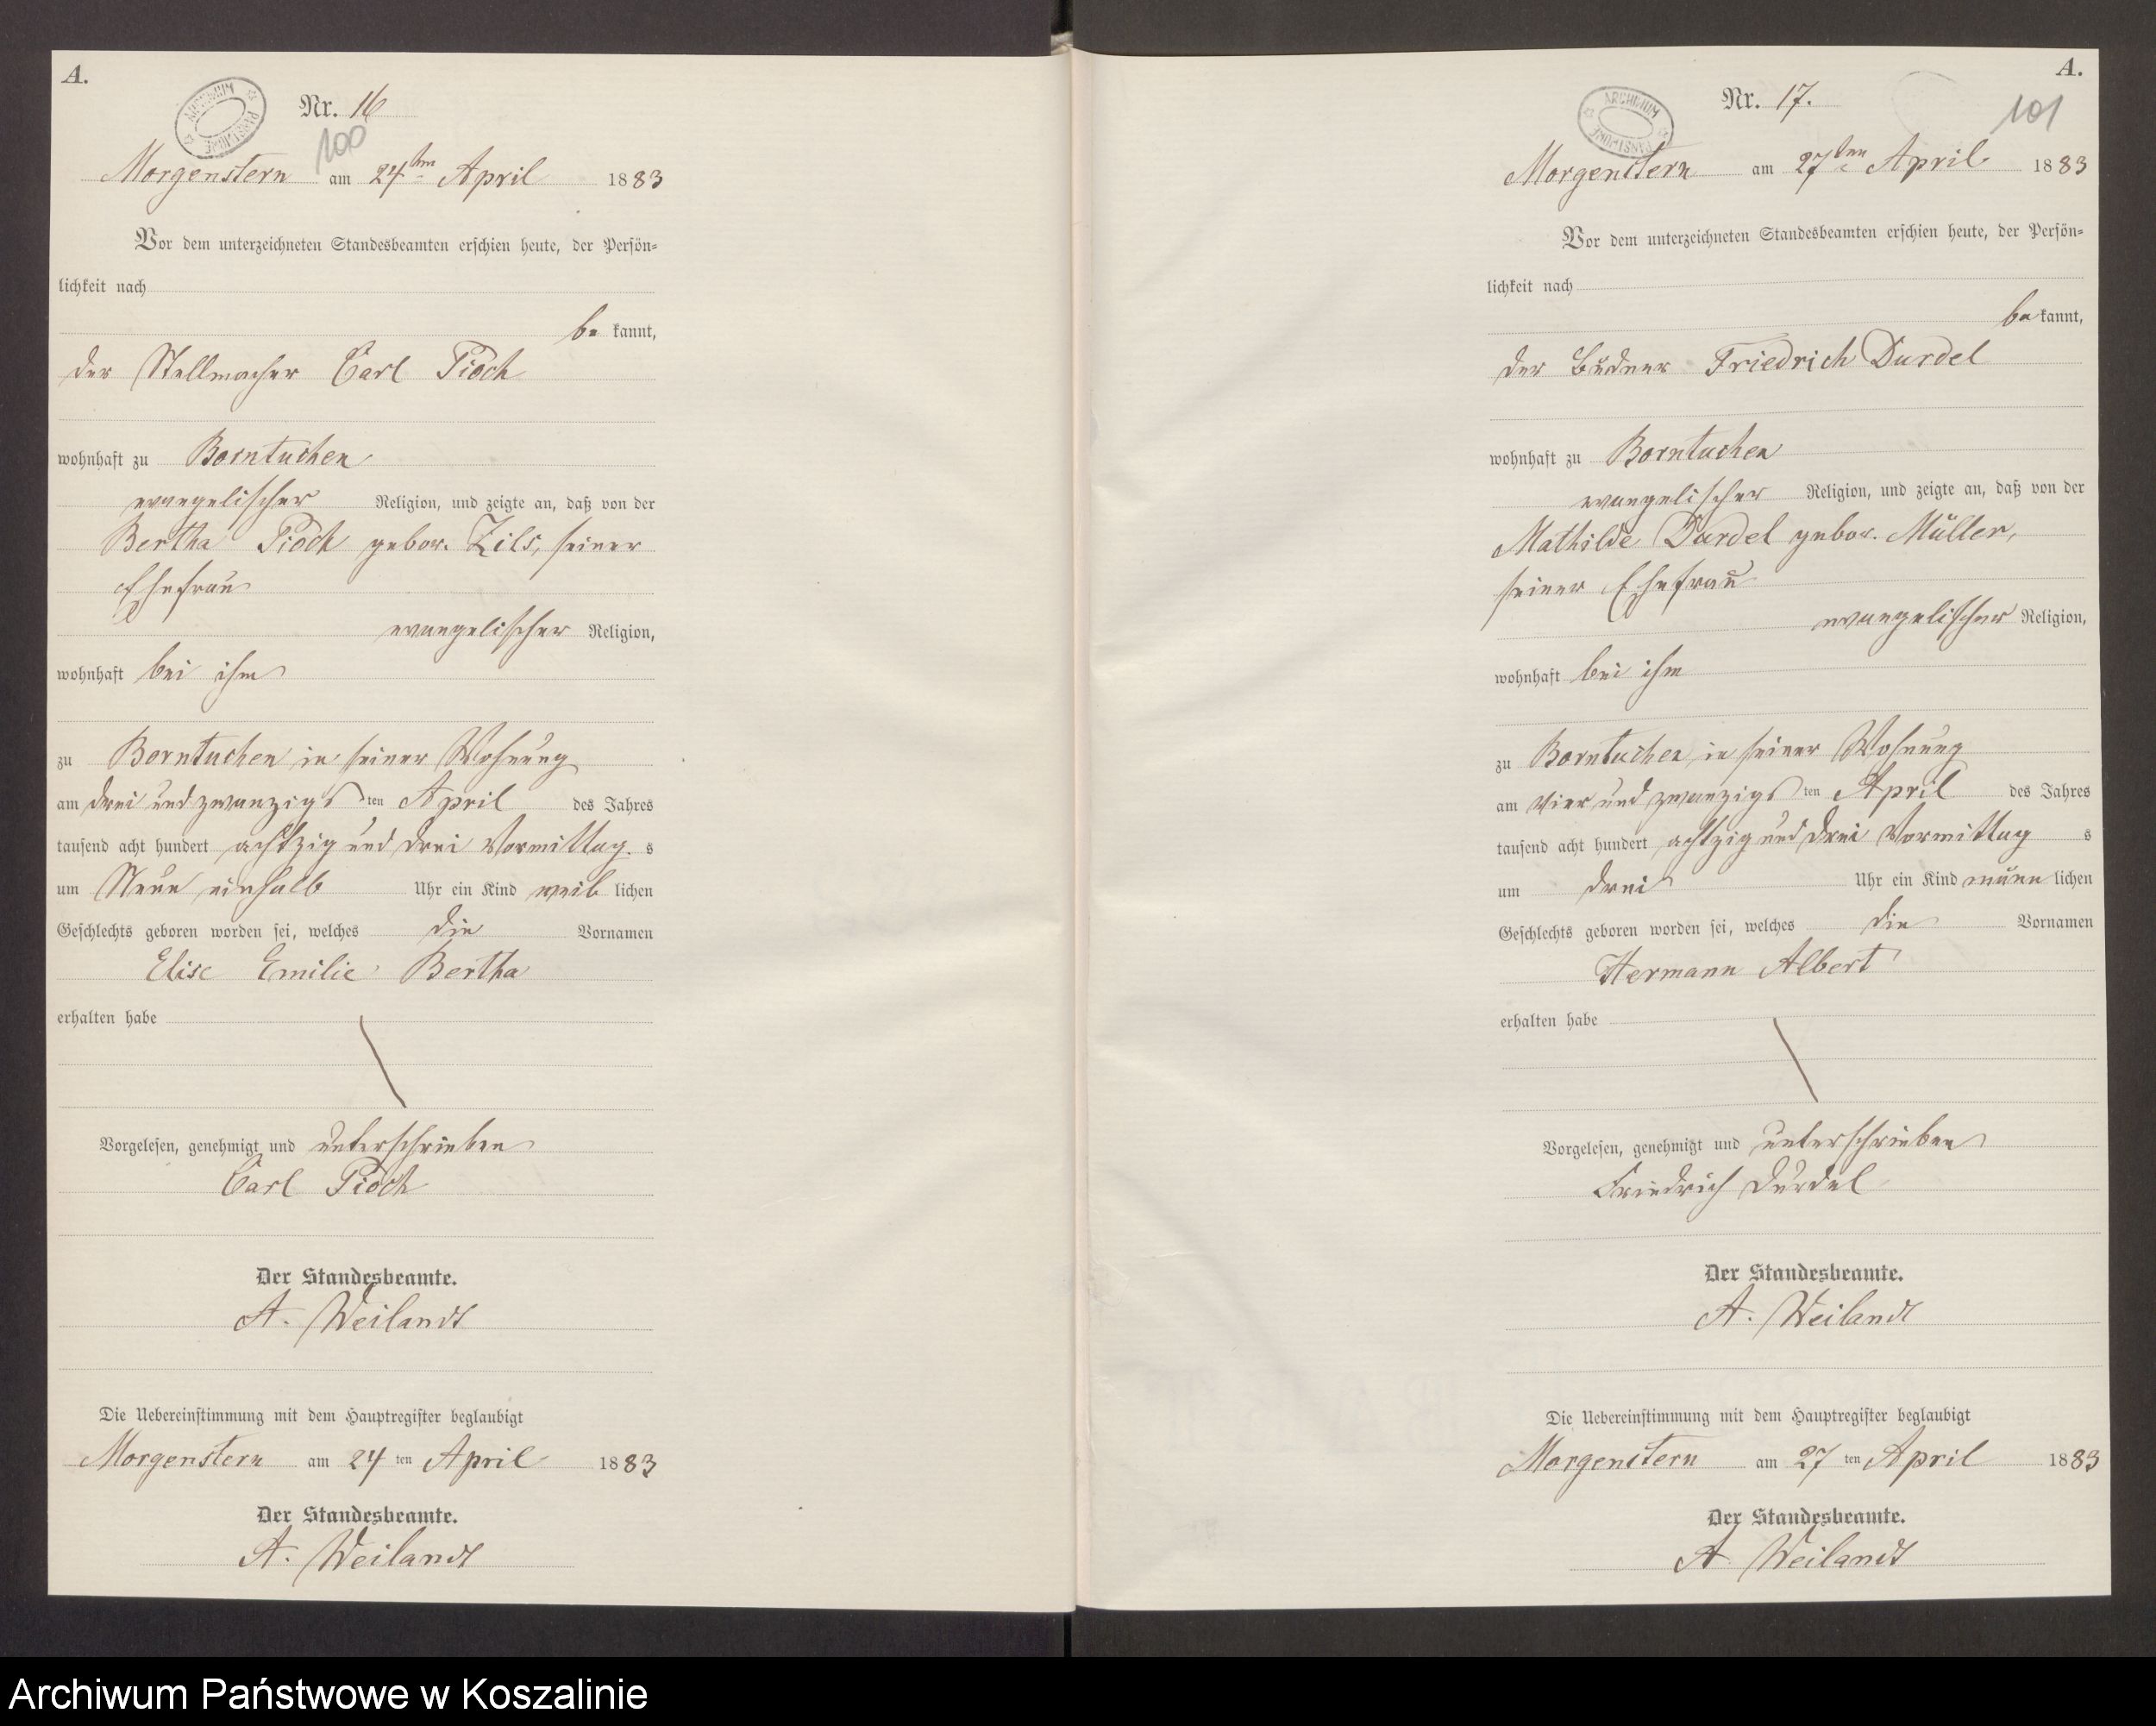 A.
Nr. 16
100
Morgenstern am 24ten April 1883
Vor dem unterzeichneten Standesbeamten erschien heute, der Persön-
lichkeit nach
be kannt,
der Stellmacher Carl Pioch
wohnhaft zu Borntuchen
evangelischer Religion, und zeigte an, daß von der
Bertha Pioch gebor. Zils, seiner
Ehefrau
evangelischer Religion,
wohnhaft bei ihm
zu Borntuchen in seiner Wohnung
am drei und zwanzigsten April des Jahres
tausend acht hundert achtzig und drei Vormittags
um Neun einhalb Uhr ein Kind weib lichen
Geschlechts geboren worden sei, welches die Vornamen
Elise Emilie Bertha
erhalten habe
Vorgelesen, genehmigt und unterschrieben
Carl Pioch
Der Standesbeamte.
A. Weilandt
Die Uebereinstimmung mit dem Hauptregister beglaubigt
Morgenstern am 24 ten April 1883
Der Standesbeamte.
A. Weilandt
A.
Nr. 17.
101
ARCHIWUM PAŃSTWOWE
Morgenstern am 27ten April 1883
Vor dem unterzeichneten Standesbeamten erschien heute, der Persön-
lichkeit nach
be kannt,
der Büdner Friedrich Durdel
wohnhaft zu Borntuchen
evangelischer Religion, und zeigte an, daß von der
Mathilde Durdel gebor. Müller,
seiner Ehefrau
evangelischer Religion,
wohnhaft bei ihm
zu Borntuchen in seiner Wohnung
am vier und zwanzigsten April des Jahres
tausend acht hundert achtzig und drei Vormittag s
um drei Uhr ein Kind männ lichen
Geschlechts geboren worden sei, welches die Vornamen
Hermann Albert
erhalten habe
Vorgelesen, genehmigt und unterschrieben
Friedrich Durdel
Der Standesbeamte.
A. Weilandt
Die Uebereinstimmung mit dem Hauptregister beglaubigt
Morgenstern am 27 ten April 1883
Der Standesbeamte.
A. Weilandt
Archiwum Państwowe w Koszalinie